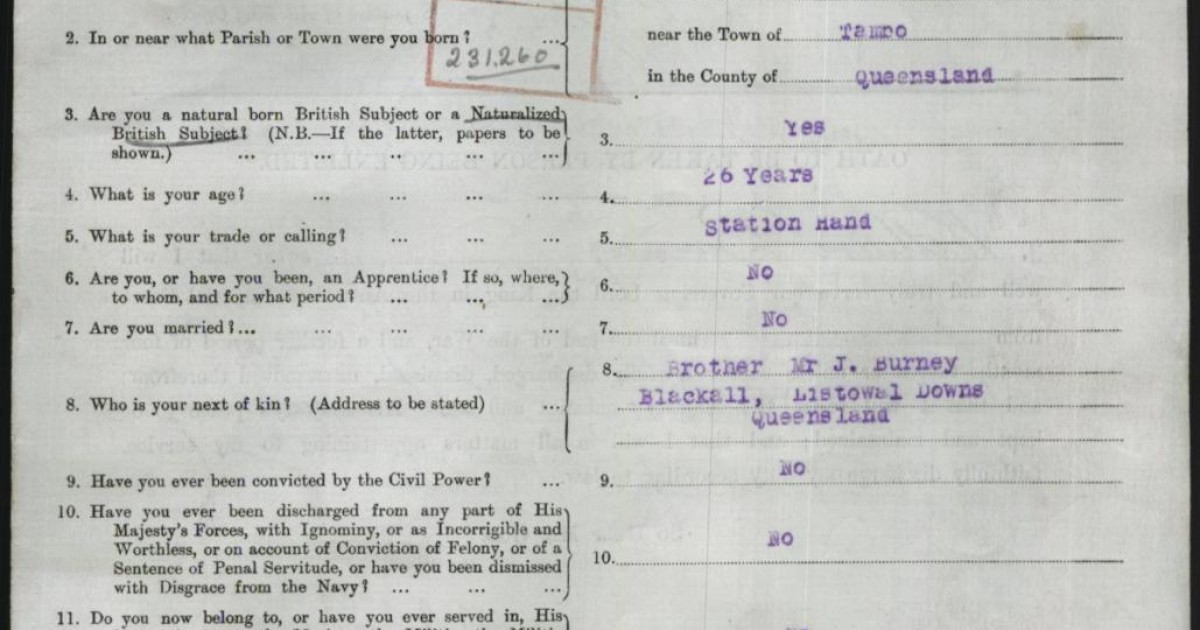 2. In or near what Parish or Town were you born? ... near the Town of Tambo
231,260
in the County of Queensland
3. Are you a natural born British Subject or a Naturalized
British Subject? (N.B.—If the latter, papers to be
shown.) ... ... ... ... ... 3. Yes
4. What is your age? ... ... ... ... 4. 26 Years
5. What is your trade or calling? ... ... ... 5. Station Hand
6. Are you, or have you been, an Apprentice? If so, where,
to whom, and for what period? ... ... ... 6. No
7. Are you married?... ... ... ... 7. No
8. Who is your next of kin? (Address to be stated) ... 8. Brother Mr J. Burney
Blackall, Listowal Downs
Queensland
9. Have you ever been convicted by the Civil Power? ... 9. No
10. Have you ever been discharged from any part of His
Majesty's Forces, with Ignominy, or as Incorrigible and
Worthless, or on account of Conviction of Felony, or of a
Sentence of Penal Servitude, or have you been dismissed
with Disgrace from the Navy? ... ... ... 10. No
11. Do you now belong to, or have you ever served in, His